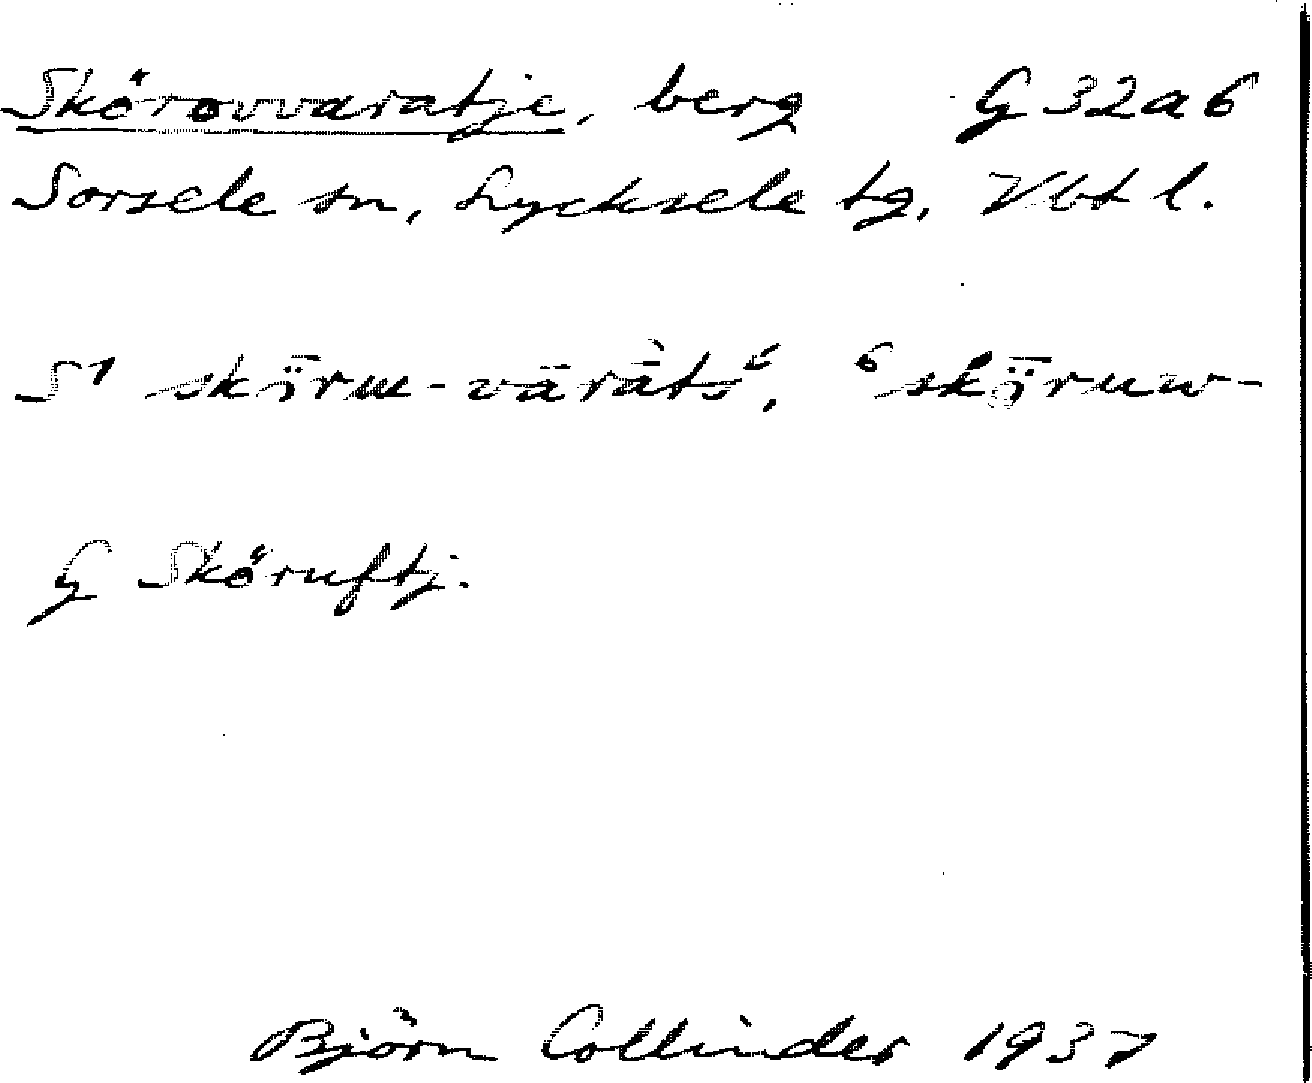 Skörovvaratje, berg G 32a6
Sorsele sn, Lycksele tg, Vbt l.
S1 skï̄rɯ-väràts⁶, ⁶skï̄rɯw-
G Sköruftj.
Björn Collinder 1937